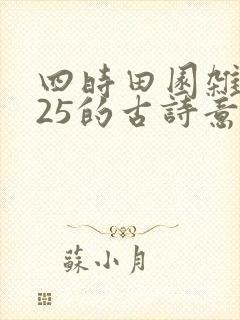 四時田園雜
25的古詩意
蘇小月